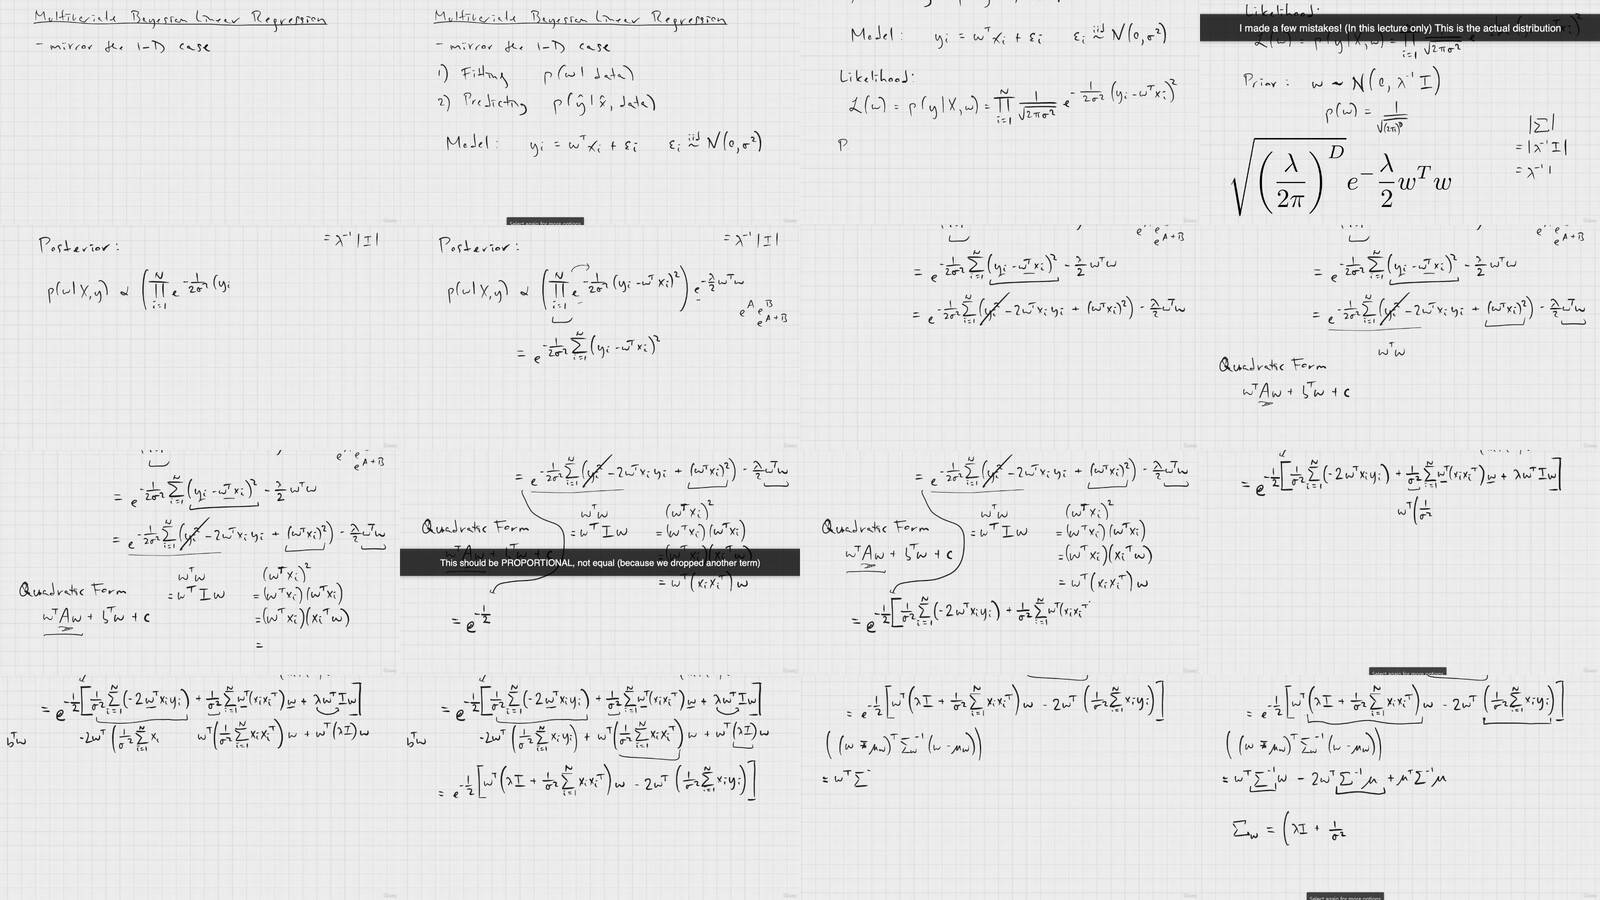 Multivariate Bayesian Linear Regression
- mirror the 1-D case
Multivariate Bayesian Linear Regression
- mirror the 1-D case
1) Fitting p(w | data)
2) Predicting p(ŷ | x̂, data)
Model: yᵢ = wᵀxᵢ + εᵢ εᵢ iid~ N(0, σ²)
Model: yᵢ = wᵀxᵢ + εᵢ εᵢ iid~ N(0, σ²)
Likelihood:
L(w) = p(y | X, w) = ∏ᵢ₌₁ᴺ 1/√(2πσ²) e^{-1/(2σ²) (yᵢ - wᵀxᵢ)²}
P
Likelihood:
I made a few mistakes! (In this lecture only) This is the actual distribution
L(w) = p(y | X, w) = ∏ᵢ₌₁ 1/√(2πσ²) e
Prior: w ~ N(0, λ⁻¹I)
p(w) = 1/√((2π)ᴰ
√((λ/2π)^D) e^{-λ/2 wᵀw}
|Σ|
= |λ⁻¹I|
= λ⁻¹ |
Posterior:
= λ⁻¹ |I|
p(w | X, y) ∝ (∏ᵢ₌₁ᴺ e^{-1/(2σ²) (yᵢ
Posterior:
= λ⁻¹ |I|
p(w | X, y) ∝ (∏ᵢ₌₁ᴺ e^{-1/(2σ²) (yᵢ - wᵀxᵢ)²}) e^{-λ/2 wᵀw}
e^A e^B
e^{A+B}
= e^{-1/(2σ²) Σᵢ₌₁ᴺ (yᵢ - wᵀxᵢ)²}
e^{A+B}
= e^{-1/(2σ²) Σᵢ₌₁ᴺ (yᵢ - wᵀxᵢ)² - λ/2 wᵀw}
= e^{-1/(2σ²) Σᵢ₌₁ᴺ (yᵢ² - 2wᵀxᵢyᵢ + (wᵀxᵢ)²) - λ/2 wᵀw}
e^{A+B}
= e^{-1/(2σ²) Σᵢ₌₁ᴺ (yᵢ - wᵀxᵢ)² - λ/2 wᵀw}
= e^{-1/(2σ²) Σᵢ₌₁ᴺ (yᵢ² - 2wᵀxᵢyᵢ + (wᵀxᵢ)²) - λ/2 wᵀw}
wᵀw
Quadratic Form
wᵀAw + bᵀw + c
e^{A+B}
= e^{-1/(2σ²) Σᵢ₌₁ᴺ (yᵢ - wᵀxᵢ)² - λ/2 wᵀw}
= e^{-1/(2σ²) Σᵢ₌₁ᴺ (yᵢ² - 2wᵀxᵢyᵢ + (wᵀxᵢ)²) - λ/2 wᵀw}
wᵀw (wᵀxᵢ)²
Quadratic Form = wᵀIw = (wᵀxᵢ)(wᵀxᵢ)
wᵀAw + bᵀw + c = (wᵀxᵢ)(xᵢᵀw)
=
= e^{-1/(2σ²) Σᵢ₌₁ᴺ (yᵢ² - 2wᵀxᵢyᵢ + (wᵀxᵢ)²) - λ/2 wᵀw}
wᵀw (wᵀxᵢ)²
Quadratic Form = wᵀIw = (wᵀxᵢ)(wᵀxᵢ)
wᵀAw + bᵀw + c = (wᵀxᵢ)(xᵢᵀw)
This should be PROPORTIONAL, not equal (because we dropped another term)
= wᵀ(xᵢxᵢᵀ)w
= e^{-1/2
= e^{-1/(2σ²) Σᵢ₌₁ᴺ (yᵢ² - 2wᵀxᵢyᵢ + (wᵀxᵢ)²) - λ/2 wᵀw}
wᵀw (wᵀxᵢ)²
Quadratic Form = wᵀIw = (wᵀxᵢ)(wᵀxᵢ)
wᵀAw + bᵀw + c = (wᵀxᵢ)(xᵢᵀw)
= wᵀ(xᵢxᵢᵀ)w
= e^{-1/2 [1/σ² Σᵢ₌₁ᴺ (-2wᵀxᵢyᵢ) + 1/σ² Σᵢ₌₁ᴺ wᵀ(xᵢxᵢᵀ
= e^{-1/2 [1/σ² Σᵢ₌₁ᴺ (-2wᵀxᵢyᵢ) + 1/σ² Σᵢ₌₁ᴺ wᵀ(xᵢxᵢᵀ)w + λwᵀIw]}
wᵀ(1/σ²
= e^{-1/2 [1/σ² Σᵢ₌₁ᴺ (-2wᵀxᵢyᵢ) + 1/σ² Σᵢ₌₁ᴺ wᵀ(xᵢxᵢᵀ)w + λwᵀIw]}
bᵀw -2wᵀ(1/σ² Σᵢ₌₁ᴺ xᵢ wᵀ(1/σ² Σᵢ₌₁ᴺ xᵢxᵢᵀ)w + wᵀ(λI)w
= e^{-1/2 [1/σ² Σᵢ₌₁ᴺ (-2wᵀxᵢyᵢ) + 1/σ² Σᵢ₌₁ᴺ wᵀ(xᵢxᵢᵀ)w + λwᵀIw]}
bᵀw -2wᵀ(1/σ² Σᵢ₌₁ᴺ xᵢyᵢ) + wᵀ(1/σ² Σᵢ₌₁ᴺ xᵢxᵢᵀ)w + wᵀ(λI)w
= e^{-1/2 [wᵀ(λI + 1/σ² Σᵢ₌₁ᴺ xᵢxᵢᵀ)w - 2wᵀ(1/σ² Σᵢ₌₁ᴺ xᵢyᵢ)]}
= e^{-1/2 [wᵀ(λI + 1/σ² Σᵢ₌₁ᴺ xᵢxᵢᵀ)w - 2wᵀ(1/σ² Σᵢ₌₁ᴺ xᵢyᵢ)]}
((w - μ_w)ᵀ Σ_w⁻¹ (w - μ_w))
= wᵀΣ⁻
= e^{-1/2 [wᵀ(λI + 1/σ² Σᵢ₌₁ᴺ xᵢxᵢᵀ)w - 2wᵀ(1/σ² Σᵢ₌₁ᴺ xᵢyᵢ)]}
((w - μ_w)ᵀ Σ_w⁻¹ (w - μ_w))
= wᵀΣ⁻¹w - 2wᵀΣ⁻¹μ + μᵀΣ⁻¹μ
Σ_w = (λI + 1/σ²